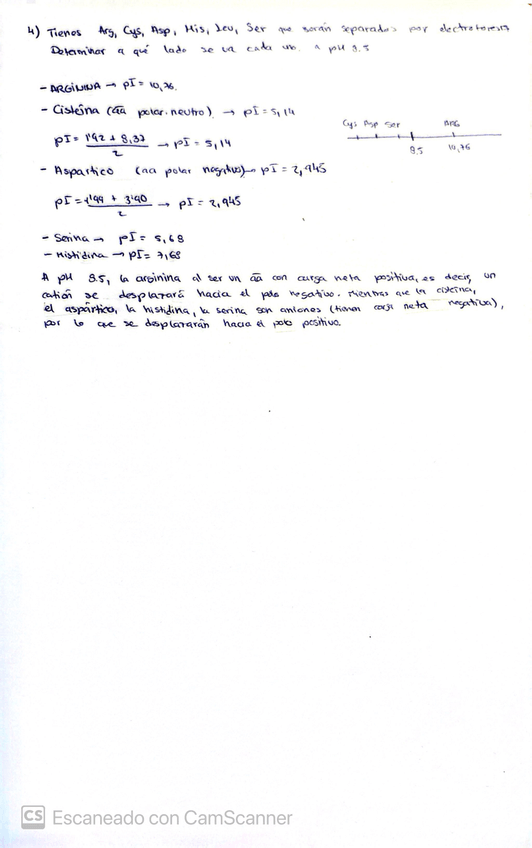 4) Tienes Arg, Cys, Asp, His, Leu, Ser que serán separados por electroforesis
Determinar a qué lado se va cada uno. A pH 8.5
- ARGININA → pI = 10,76.
- Cisteína (āa polar neutro) → pI = 5,14
Cys Asp Ser ARG
pI = 1'92 + 8,37 / 2 → pI = 5,14
8,5 10,76
- Aspartico (aa polar negativo) → pI = 2,945
pI = 1'99 + 3'90 / 2 → pI = 2,945
- Serina → pI = 5,68
- Histidina → pI = 7,68
A pH 8.5, la arginina al ser un āa con carga neta positiva, es decir, un
catión se desplazará hacia el polo negativo. Mientras que la cisteína,
el aspártico, la histidina, la serina son aniones (tienen carga neta negativa),
por lo que se desplazarán hacia el polo positivo.
CS Escaneado con CamScanner